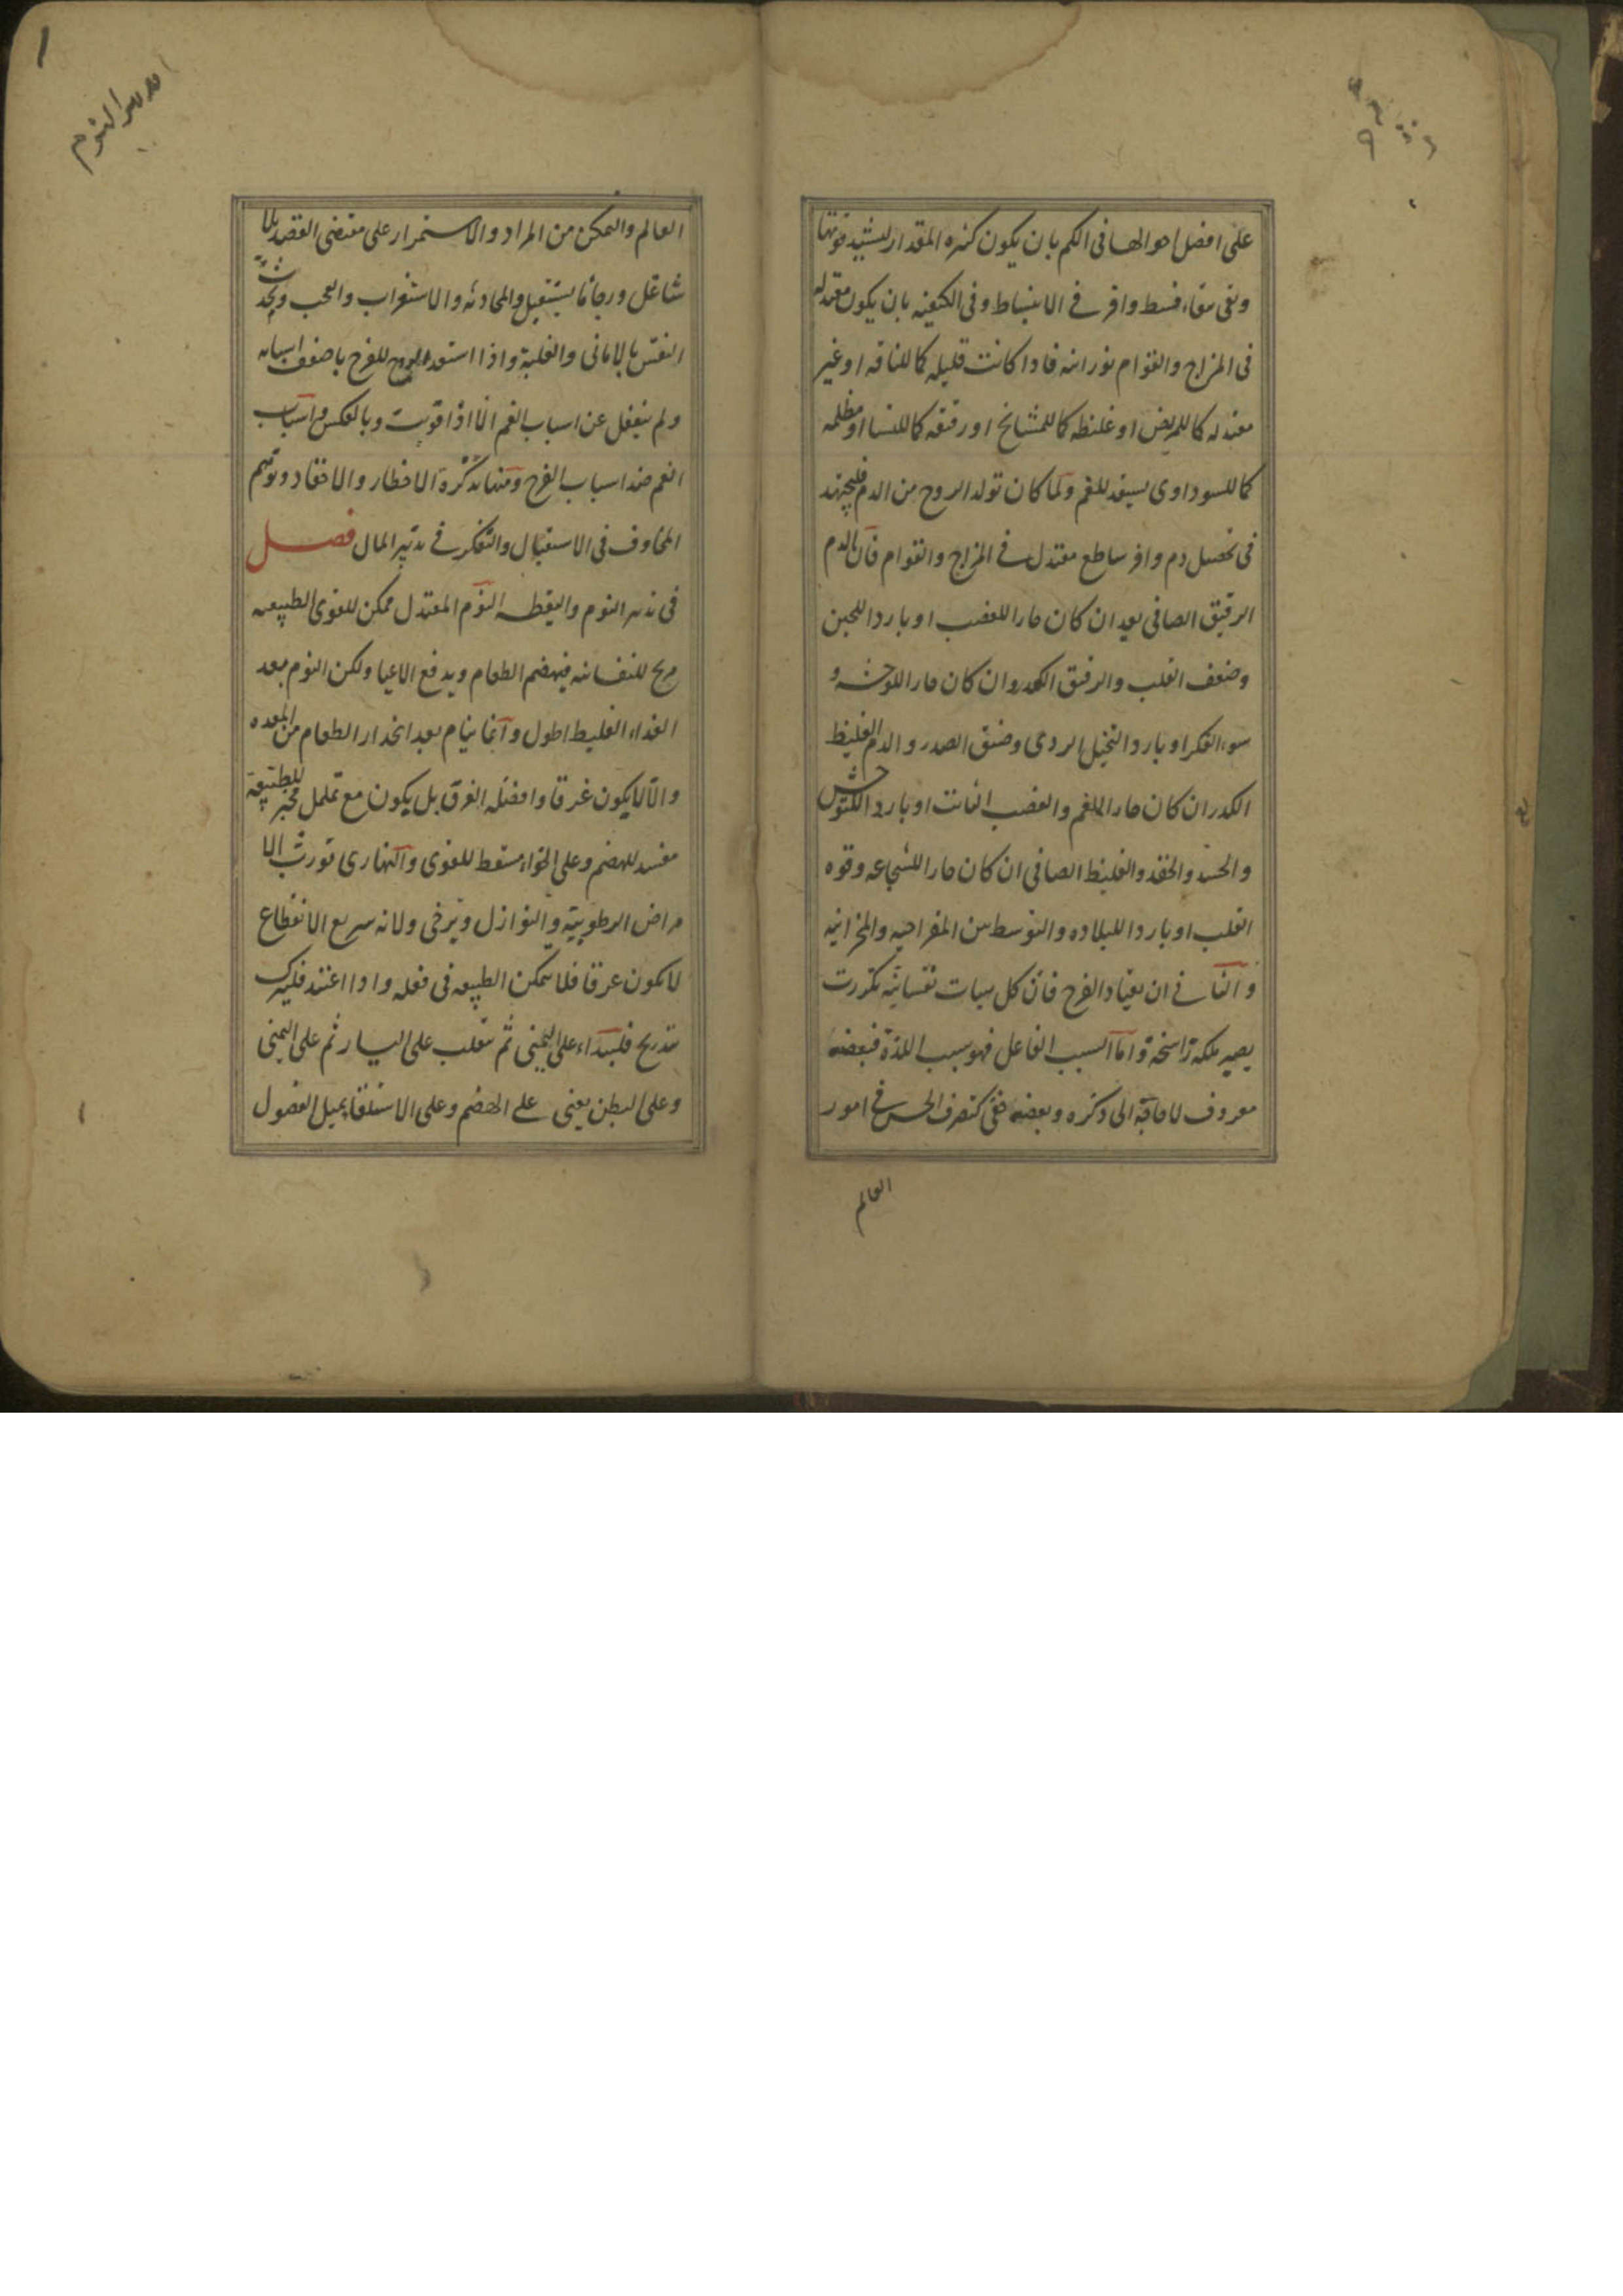 على افضل احوالها فى الكم بان يكون كثيره المقدار ليشتد قوتها
وتفى ببقاء قسط وافر فى الانبساط وفى الكيفيه بان يكون معتدله
فى المزاج والقوام نورانيه فاذا كانت قليله كما للناقه او غير
معتدله كما للمريض او غليظه كما للمشايخ او رقيقه كما للنسا او مظلمه
كما للسوداوى يستعد للغم ولما كان تولد الروح من الدم فليجتهد
فى تحصيل دم وافر ساطع معتدل فى المزاج والقوام فان الدم
الرقيق الصافى يعد ان كان حارا للغضب او باردا للجبن
وضعف القلب والرقيق الكدر وان كان حارا للوحشه و
سوء الفكر او باردا لتخيل الردى وضيق الصدر والدم الغليظ
الكدر ان كان حارا للغم والغضب الثابت او باردا للتوحش
والحسد والحقد والغليظ الصافى ان كان حارا للشجاعه وقوه
القلب او باردا للبلاده والتوسط بين المفراحيه والمحزانيه
والثانى ان يعتاد الفرح فان كل هيات نفسانيه تكررت
يصير ملكة راسخة واما السبب الفاعل فهو سبب اللذة فبعضه
معروف لا حاجة الى ذكره وبعضه خفى كتصرف الحس فى امور
العالم
العالم والتمكن من المراد والاستمرار على مقتضى القصد بلا
شاغل ورجاء ما يستقبل والمحادثه والاستغراب والعجب وتحدث
النفس بالامانى والغلبة واذا استعد الروح للفرح باضعف اسبابه
ولم ينفعل عن اسباب الغم الا اذا قويت وبالعكس واسباب
الغم ضد اسباب الفرح ومنها تذكرة الاخطار والاحقاد وتوهم
المخاوف فى الاستقبال والتفكر فى تدبير المال فصل
فى تدبير النوم واليقظه النوم المعتدل ممكن للقوى الطبيعيه
مريح للنفسانيه فيهضم الطعام ويدفع الاعيا ولكن النوم بعد
الغذاء الغليظ اطول وانما ينام بعد انحدار الطعام من المعده
والا لا يكون غرقا وافضله الغرق بل يكون مع تململ محير للطبيعة
مفسد للهضم وعلى الخواء مسقط للقوى والنهارى تورث الا
مراض الرطوبية والنوازل ويرخى ولانه سريع الانقطاع
لا يكون غرقا فلا يتمكن الطبيعه فى فعله واذا اعتيد فليترك
بتدريج فليبتداء على اليمنى ثم ينقلب على اليسار ثم على اليمنى
وعلى البطن يعين على الهضم وعلى الاستلقاء يميل الفضول